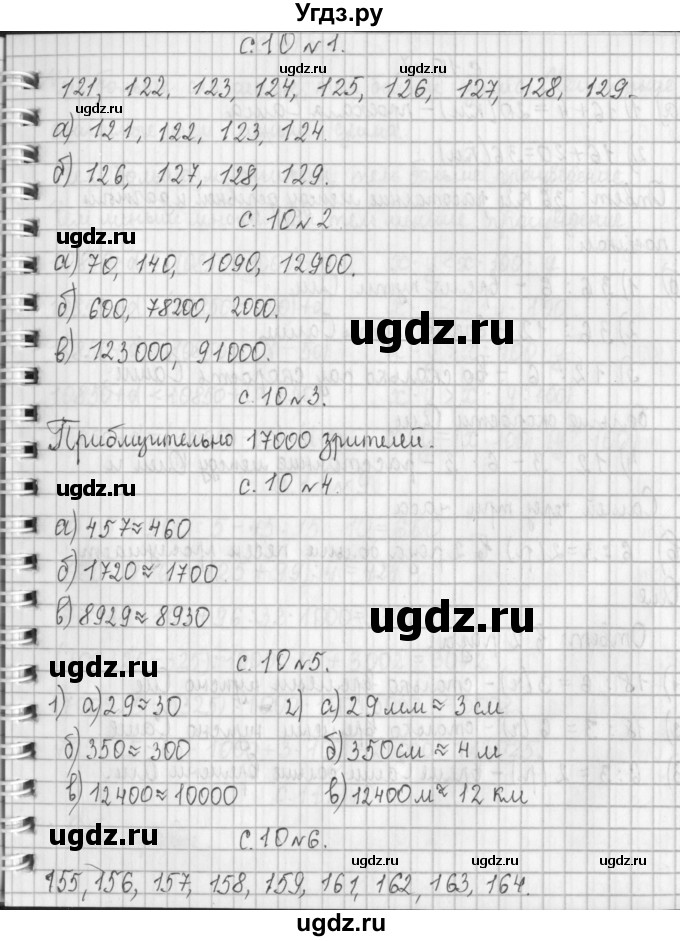 Угдз.ру
с.10 №1.
ugdz.ru ugdz.ru
121, 122, 123, 124, 125, 126, 127, 128, 129.
ugdz.ru
а) 121, 122, 123, 124.
б) 126, 127, 128, 129.
с. 10 №2
ugdz.ru
а) 70, 140, 1090, 12900.
б) 600, 78200, 2000.
ugdz.ru
в) 123000, 91000.
с. 10 №3.
Приблизительно 17000 зрителей.
ugdz.ru
с. 10 №4.
а) 457≈460
б) 1720≈1700.
в) 8929≈8930
ugdz.ru
ugdz.ru
с. 10 №5.
1) а) 29≈30 2) а) 29 мм≈3 см
б) 350≈300 б) 350см≈4 м
в) 12400≈10000 в) 12400м≈12 км
ugdz.ru
с. 10 №6.
ugdz.ru ugdz.ru
155, 156, 157, 158, 159, 161, 162, 163, 164.
ugdz.ru